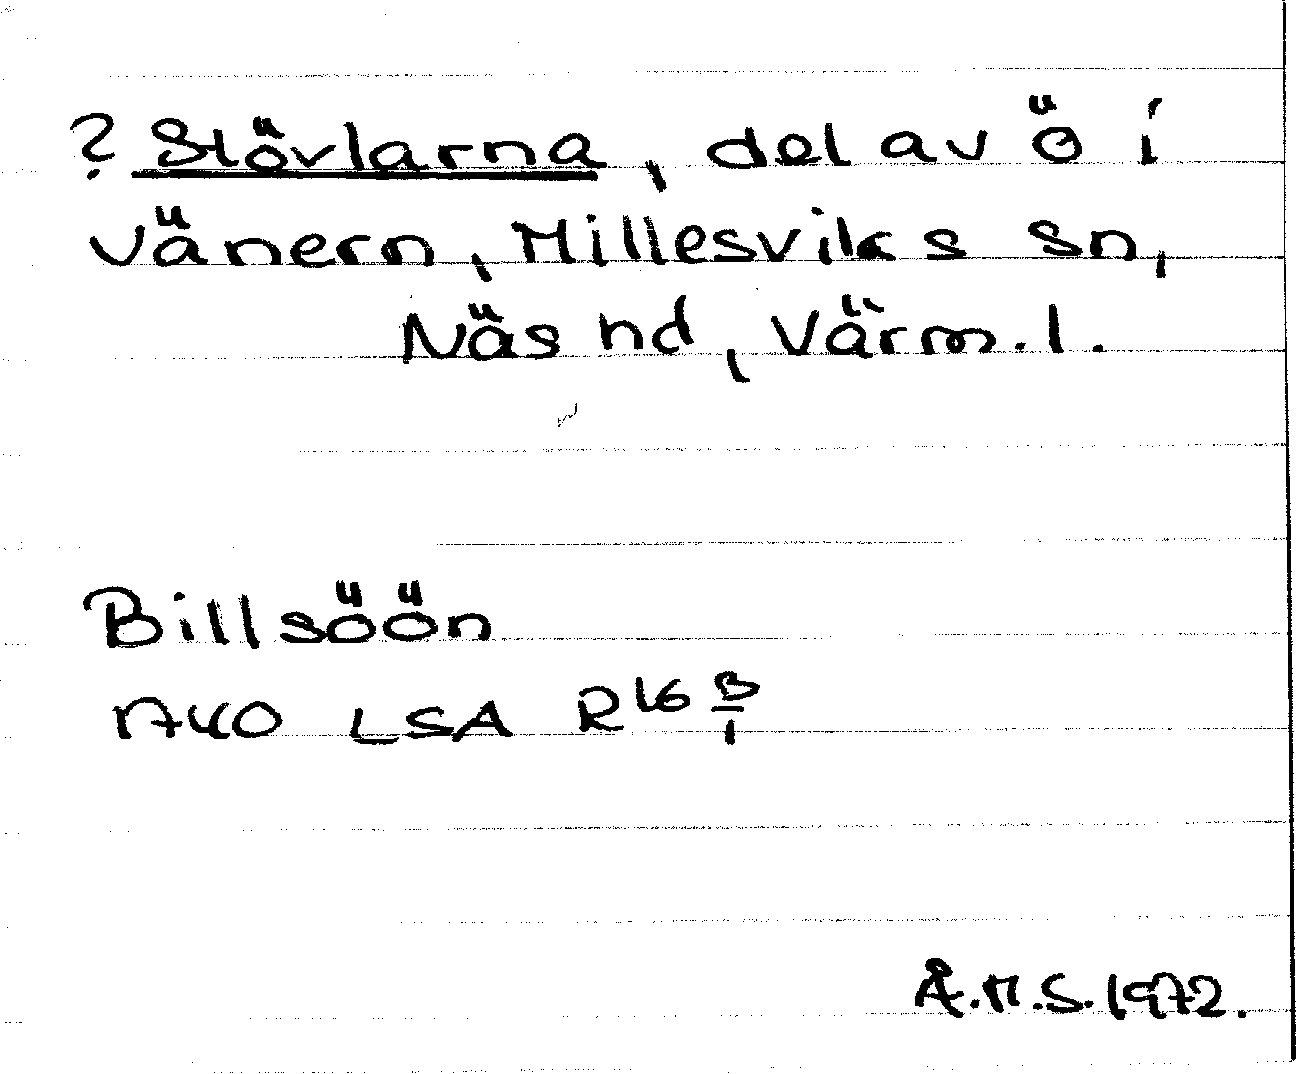 ? Stövlarna, del av ö i
Vänern, Millesviks sn,
Näs hd, Värm.l.
Billsöön
1740 LSA R16 B/1
Å.M.S. 1972.